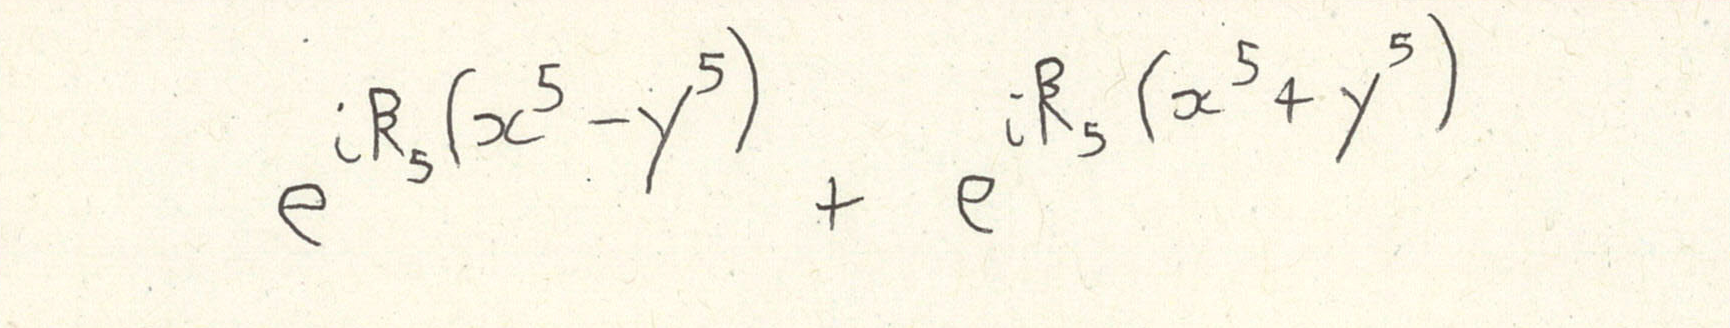 e^{ik_5(x^5-y^5)} + e^{ik_5(x^5+y^5)}